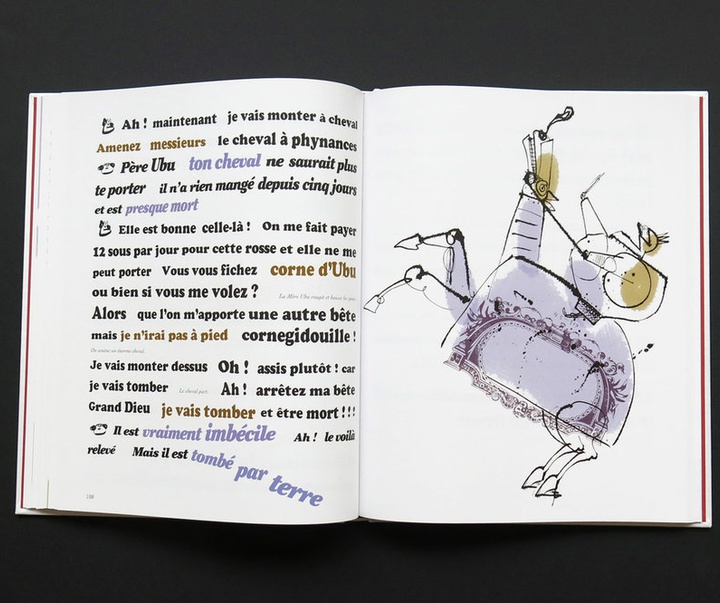 Ah ! maintenant je vais monter à cheval
Amenez messieurs le cheval à phynances
Père Ubu ton cheval ne saurait plus
te porter il n'a rien mangé depuis cinq jours
et est presque mort
Elle est bonne celle-là ! On me fait payer
12 sous par jour pour cette rosse et elle ne me
peut porter Vous vous fichez corne d'Ubu
ou bien si vous me volez ? La Mère Ubu rougit et baisse les yeux.
Alors que l'on m'apporte une autre bête
mais je n'irai pas à pied cornegidouille !
On amène un énorme cheval.
Je vais monter dessus Oh ! assis plutôt ! car
je vais tomber Le cheval part. Ah ! arrêtez ma bête
Grand Dieu je vais tomber et être mort ! ! !
Il est vraiment imbécile Ah ! le voilà
relevé Mais il est tombé par terre
108